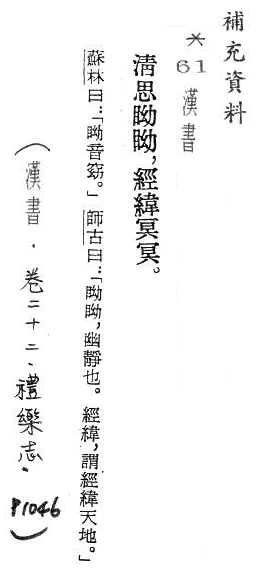 補充資料
*61 漢書
清思眑眑，經緯冥冥。
蘇林曰：「眑音窈。」師古曰：「眑眑，幽靜也。經緯，謂經緯天地。」
（漢書．卷二十二．禮樂志．P1046）